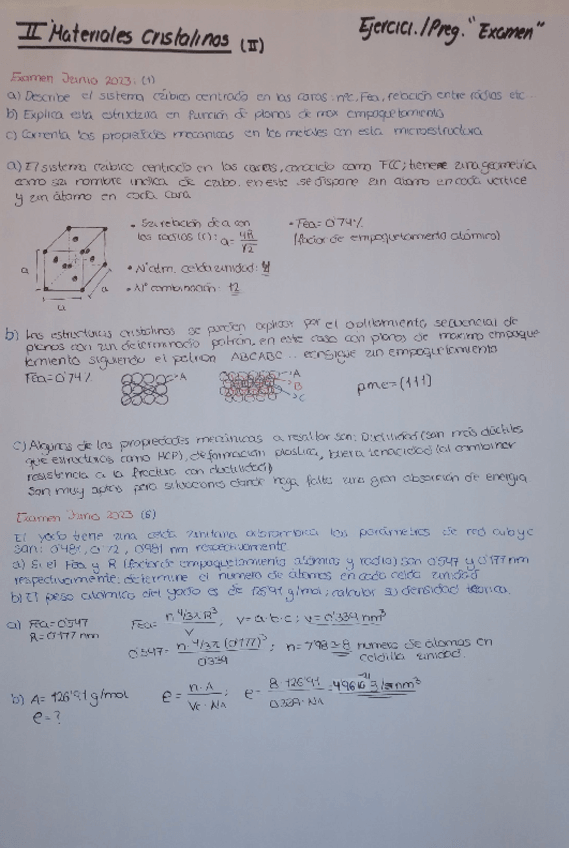 II Materiales Cristalinos (II)
Ejercici./Preg. "Examen"
Examen Junio 2023. (1)
a) Describe el sistema cúbico centrado en las caras: nºc, Fea, relación entre radios etc..
b) Explica esta estructura en función de planos de max empaquetamiento
c) Comenta las propiedades mecánicas en los metales con esta microestructura
a) El sistema cúbico centrado en las caras, conocido como FCC; tiene una geometría
como su nombre indica de cubo. en este se dispone un átomo en cada vértice
y un átomo en cada cara
• Su relación de a con
los radios (r): a = 4R/√2
• Fea = 0'74%
(factor de empaquetamiento atómico)
• Nº atm. celda unidad: 4
• Nº combinación: 12
a
a
a
b) Las estructuras cristalinas se pueden explicar por el apilamiento secuencial de
planos con un determinado patrón, en este caso con planos de máximo empaque
tamiento siguiendo el patrón ABCABC... consigue un empaquetamiento
Fea = 0'74%
A
A
B
C
pme = (111)
c) Algunas de las propiedades mecánicas a resaltar son: Ductilidad (son más dúctiles
que estructuras como HCP), deformación plástica, buena tenacidad (al combinar
resistencia a la fractura con ductilidad)
Son muy aptos para soluciones donde haga falta una gran absorción de energía
Examen Junio 2023 (6)
El yodo tiene una celda unitaria ortorrómbica los parámetros de red a,b y c
son: 0'481, 0'72, 0'981 nm respectivamente
a) Si el Fea y R (factor de empaquetamiento atómico y radio) son 0'547 y 0'177 nm
respectivamente; determine el numero de átomos en cada celda unidad
b) El peso atómico del yodo es de 126'91 g/mol; calcular su densidad teórica.
a) Fea = 0'547
R = 0'177 nm
Fea = n·4/3πR³/V, V = a·b·c; V = 0'339 nm³
0'547 = n·4/3π(0'177)³/0'339; n = 7'98≈8 numero de átomos en
celdilla unidad.
b) A = 126'91 g/mol
ρ = ?
ρ = n·A/Vc·NA; ρ = 8·126'91/0'339·NA